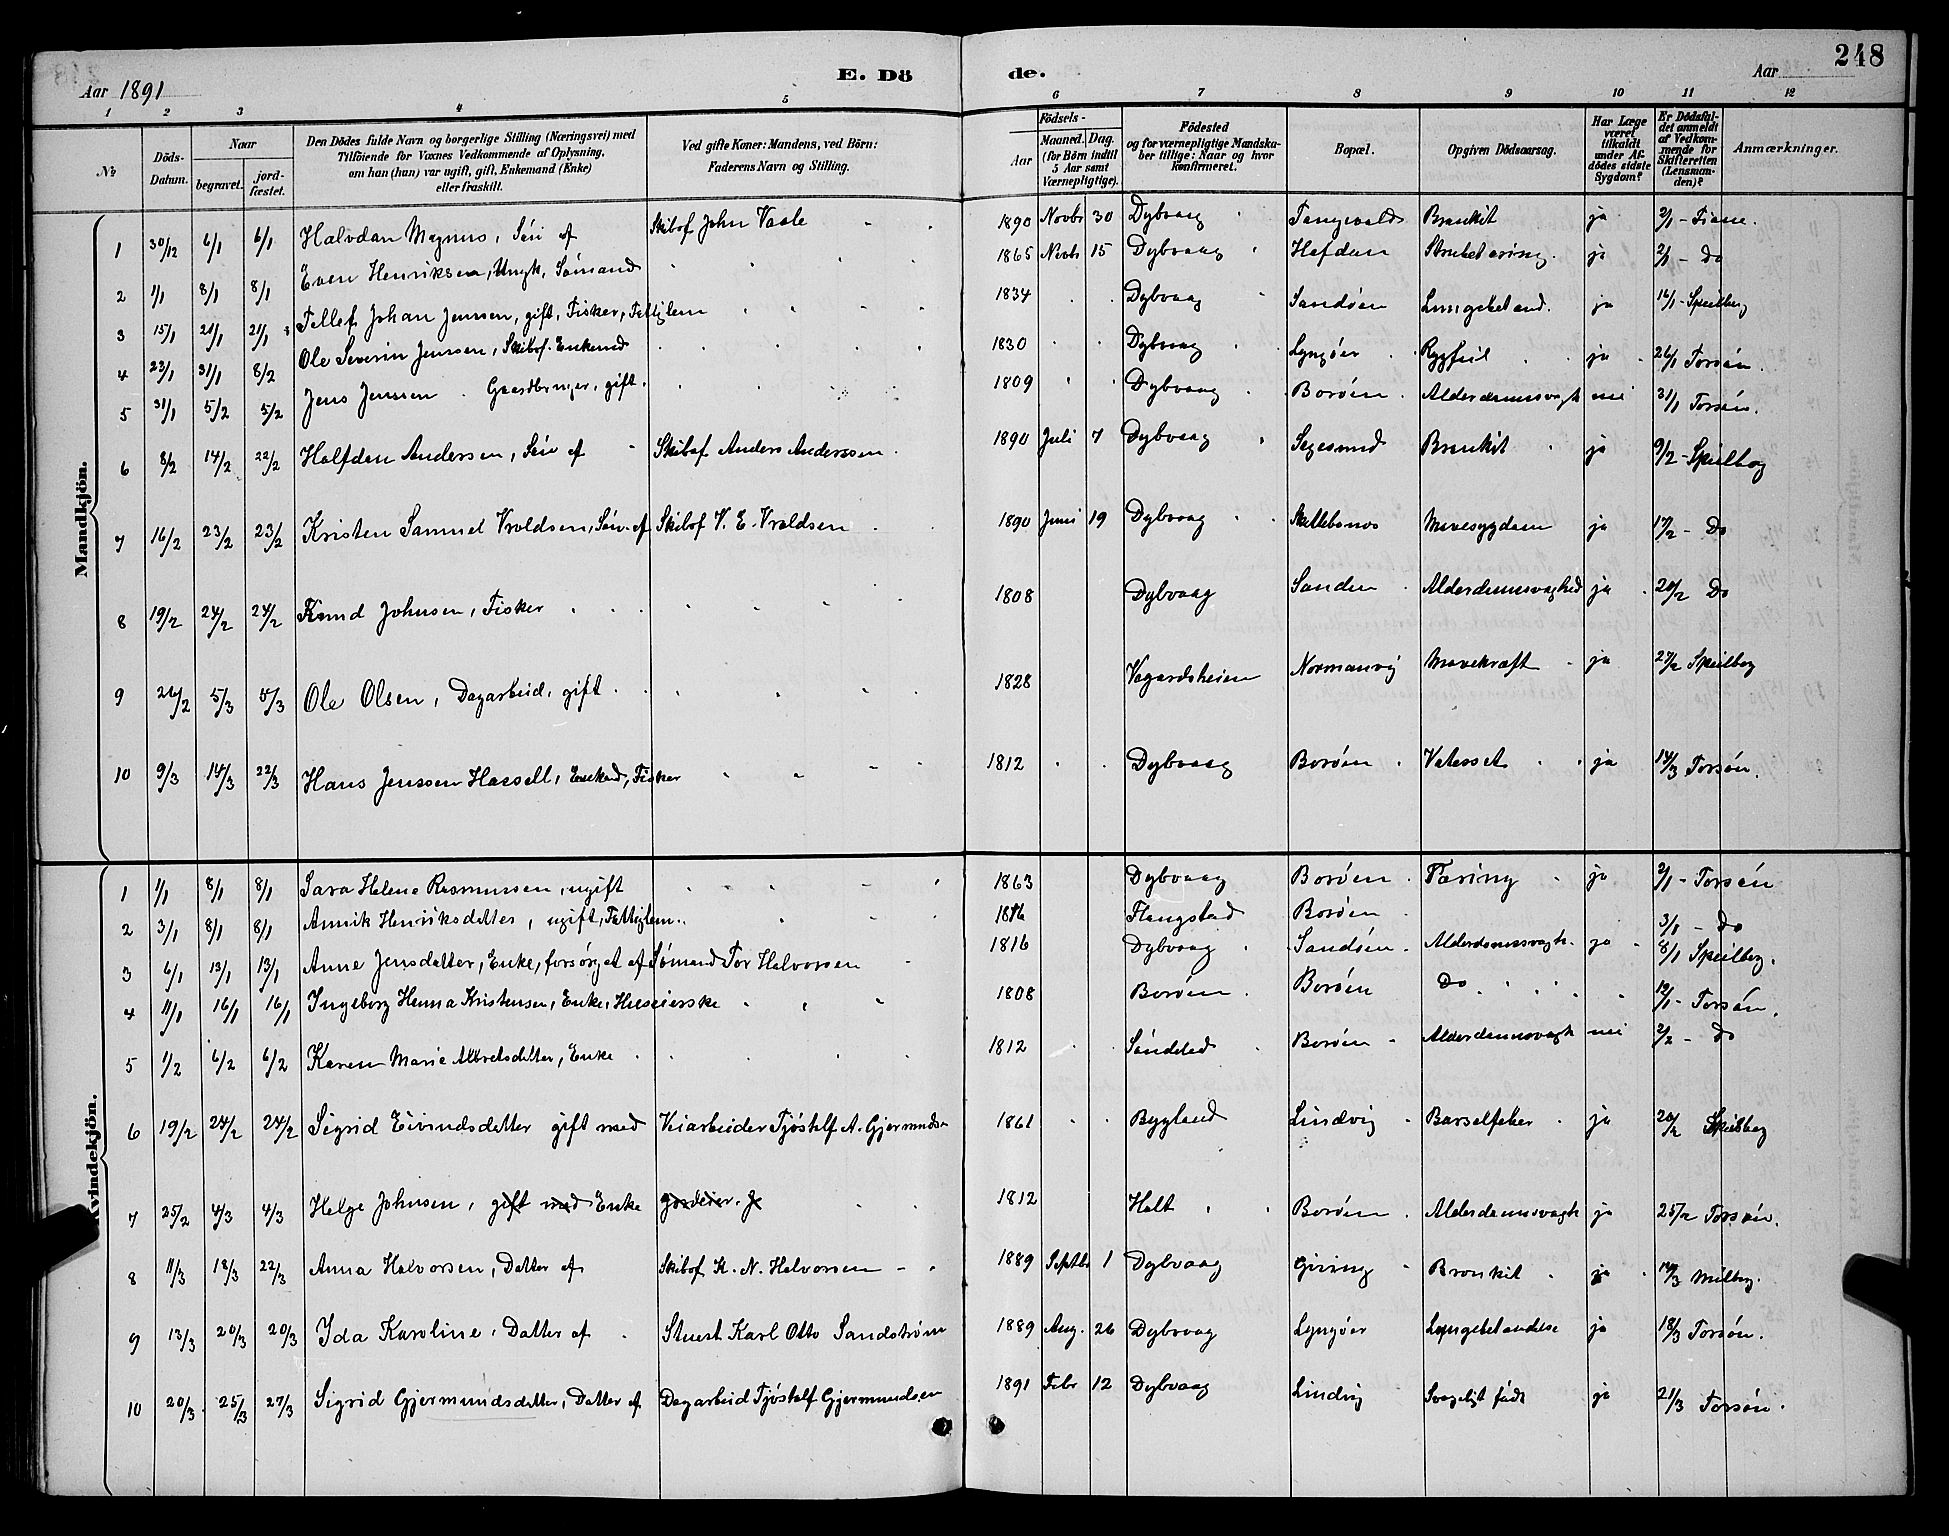 248
E. Dö de.
Aar 1891 Aar
1 2 3 4 5 6 7 8 9 10 11 12
№ Döds-Datum. Naar begravet. jordfæstet. Den Dödes fulde Navn og borgerlige Stilling (Næringsvei) med Tilföiende for Voxnes Vedkommende af Oplysning, om han (hun) var ugift, gift, Enkemand (Enke) eller fraskilt. Ved gifte Koner: Mandens, ved Börn: Faderens Navn og Stilling. Födsels- Aar Maaned. Dag. (for Börn indtil 5 Aar samt Værnepligtige). Födested og for værnepligtige Mandskaber tillige: Naar og hvor konfirmeret. Bopæl. Opgiven Dödsaarsag. Har Læge været tilkaldt under Afdödes sidste Sygdom? Er Dödsfaldet anmeldt af Vedkommende for Skifteretten (Lensmanden)? Anmærkninger.
Mandkjön.
1 30/12 6/1 6/1 Halvdan Magnus, Sön af Skibsf John Vaale 1890 Novbr 30 Dybvaag Tangevalds Bronkit ja 2/1 - Fiane.
2 1/1 8/1 8/1 Even Henriksen, Ungk, Sömand 1865 Novbr 15 Dybvaag Hafdan Strubetæring. ja 2/1 - Do
3 15/1 21/1 21/1 Tellef Johan Jenssen, gift, Fisker, Fattiglem 1834 Dybvaag Sandöen Lungebetænd. ja 16/1 - Speilberg
4 23/1 31/1 8/2 Ole Severin Jenssen, Skibsf. Enkemd 1830 Dybvaag Lyngöer Rygfeil ja 26/1 Torsön.
5 31/1 5/2 5/2 Jens Jenssen Gaardbruger, gift. 1809 Dybvaag Boröen Alderdomssvagh nei 31/1 Torsön.
6 8/2 14/2 22/2 Halfdan Andersen, Sön af Skibsf Anders Anderssen 1890 Juli 7 Dybvaag Segesund Bronkit ja 9/2 - Speilberg
7 16/2 23/2 23/2 Kristen Samuel Vroldsen, Sön af Skibsf V. E. Vroldsen 1890 Juni 19 Dybvaag Skellebonos Mavesygdom ja 17/2 - Do
8 19/2 24/2 24/2 Knud Johnsen, Fisker 1808 Dybvaag Sanden Alderdomssvaghed ja 20/2 Do
9 26/2 5/3 5/3 Ole Olsen, Dagarbeid, gift 1828 Vegardsheien Normanvig Mavekræft ja 27/2 Speilberg
10 9/3 14/3 22/3 Hans Jenssen Hassell, Enkemd, Fisker 1812 Dybvaag Boröen Vatersot ja 14/3 Torsön.
Kvindekjön.
1 1/1 8/1 8/1 Sara Helene Rasmussen, ugift 1863 Dybvaag Boröen Tæring ja 2/1 - Torsön
2 3/1 8/1 8/1 Annik Henriksdatter, ugift, Fattiglem. 1816 Flangstad Boröen 3/1 - Do
3 6/1 13/1 13/1 Anne Jensdatter, Enke, forsörget af Sömand Tor Halvorsen 1816 Dybvaag Sandöen Alderdomssvagh. ja 8/1 Speilberg.
4 11/1 16/1 16/1 Ingeborg Hanna Kristensen, Enke, Huseierske 1808 Boröen Boröen Do 12/1 - Torsön.
5 1/2 6/2 6/2 Karen Marie Albretsdatter, Enke 1812 Söndeled Boröen Alderdomssvagh nei 2/2 - Do
6 19/2 24/2 24/2 Sigrid Eivindsdatter gift med Veiarbeider Tjöstolf A. Gjermunds- 1861 Bygland Lindvig Barselfeber ja 20/2 Speilberg
7 25/2 4/3 4/3 Helge Johnsen, gift med Enke gårdeier. J 1812 Holt Boröen Alderdomssvagh ja 25/2 Torsön.
8 11/3 18/3 22/3 Anna Halvorsen, Datter af Skibsf K. N. Halvorsen 1889 Septbr 1 Dybvaag Giving Bronkit ja
9 13/3 20/3 20/3 Ida Karoline, Datter af Stuert Karl Otto Sandström 1889 Aug. 26 Dybvaag Lyngöer Lungebetændelse ja 18/3 Torsön.
10 20/3 25/3 27/3 Sigrid Gjermundsdatter, Datter af Dagarbeid Tjöstolf Gjermundsen 1891 Febr 12 Dybvaag Lindvig Svageligt födt ja 21/3 Torsön.